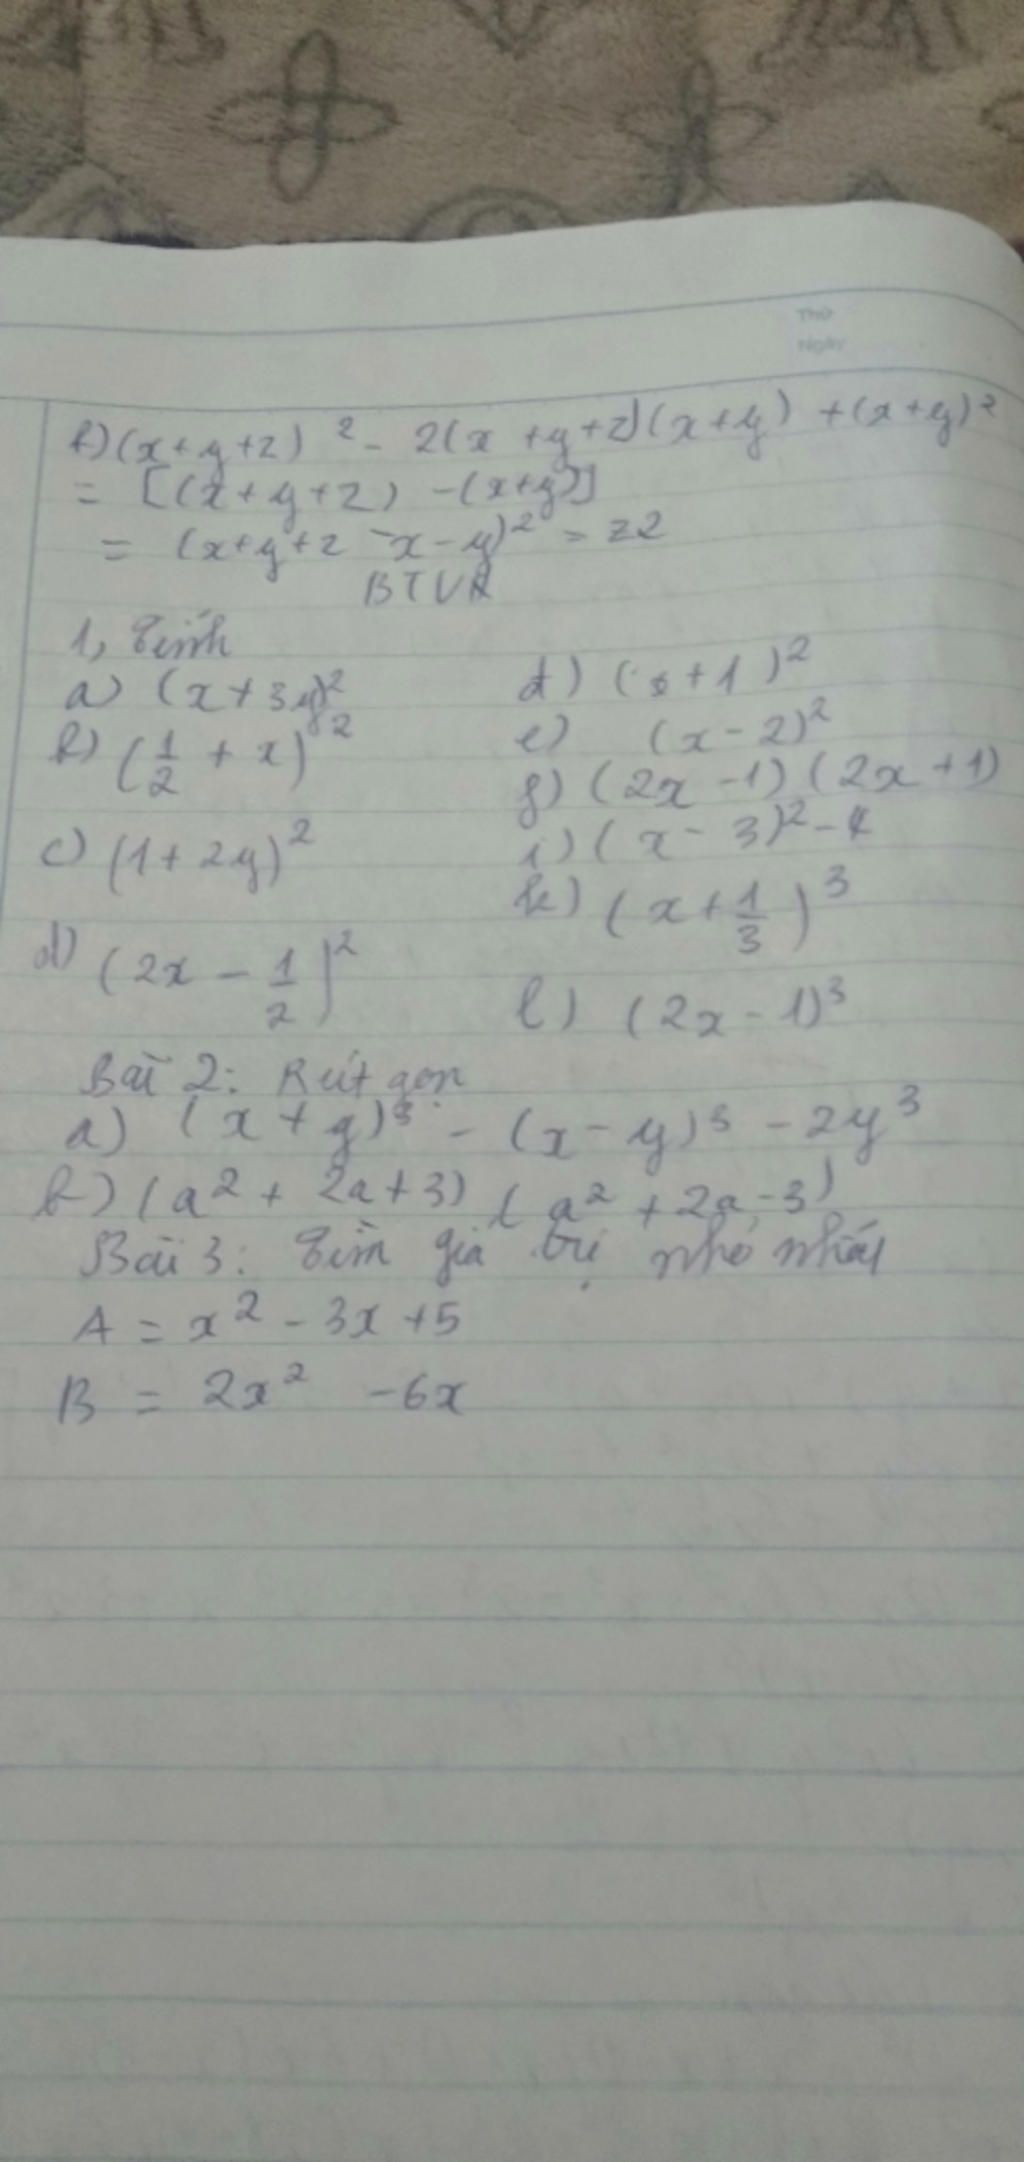 Thứ
Ngày
b) (x+y+z)² - 2(x+y+z)(x+y) + (x+y)²
= [(x+y+z) - (x+y)]
= (x+y+z - x-y)² = z2
BTVN
1, Tính
a) (x+3y)²
b) (1/2 + x)²
c) (1+2y)²
d) (2x - 1/2)²
d) (x+1)²
e) (x-2)²
f) (2x-1)(2x+1)
i) (x-3)²-4
k) (x+1/3)³
l) (2x-1)³
Bài 2: Rút gọn
a) (x+y)³ - (x-y)³ - 2y³
b) (a² + 2a+3) (a² + 2a-3)
Bài 3: Tìm giá trị nhỏ nhất
A = x² - 3x + 5
B = 2x² - 6x